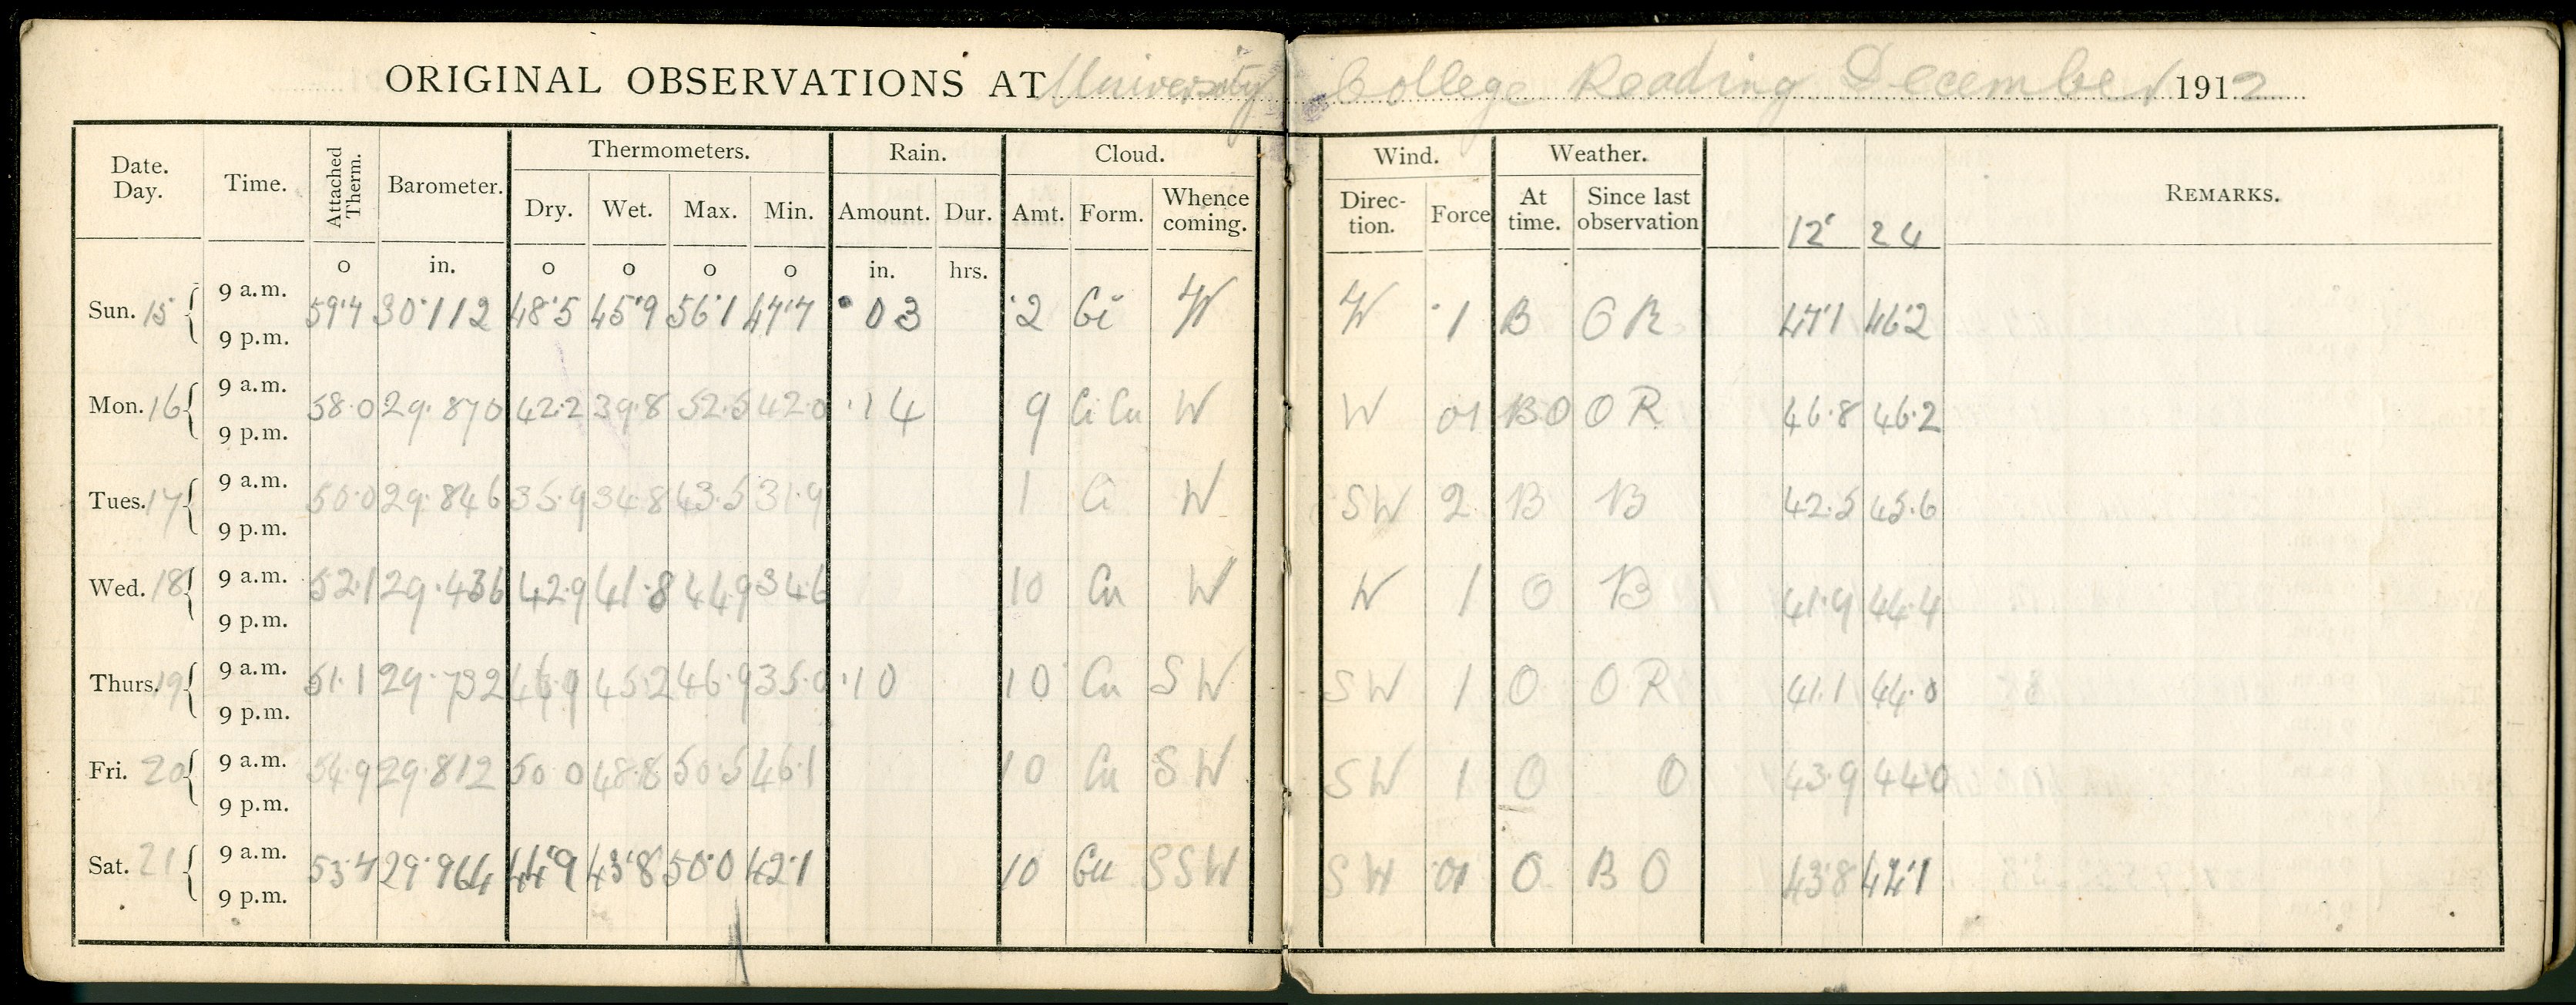 ORIGINAL OBSERVATIONS AT University College Reading December 1912
Date. Day. Time. Attached Therm. Barometer. Thermometers. Rain. Cloud. Wind. Weather. REMARKS.
Dry. Wet. Max. Min. Amount. Dur. Amt. Form. Whence coming. Direc- tion. Force At time. Since last observation 12" 24
o in. o o o o in. hrs.
Sun. 15 9 a.m. 59.4 30.112 48.5 45.9 56.1 47.7 .03 .2 Ci W W .1 B O R 47.1 46.2
9 p.m.
Mon. 16 9 a.m. 58.0 29.870 42.2 39.8 52.5 42.0 .14 9 Ci Cu W W 01 BO O R 46.8 46.2
9 p.m.
Tues. 17 9 a.m. 50.0 29.846 35.9 34.8 43.5 31.9 1 Ci W SW 2 B B 42.5 45.6
9 p.m.
Wed. 18 9 a.m. 52.1 29.436 42.9 41.8 44.9 34.6 10 Cu W W 1 O B 41.9 44.4
9 p.m.
Thurs. 19 9 a.m. 51.1 29.732 46.9 45.2 46.9 35.0 .10 10 Cu SW SW 1 O O R 41.1 44.0
9 p.m.
Fri. 20 9 a.m. 54.9 29.812 50 0 48.8 50.5 46.1 10 Cu SW SW 1 O O 43.9 440
9 p.m.
Sat. 21 9 a.m. 53.4 29.964 44.9 43.8 50.0 42.1 10 Cu SSW SW 01 O B O 43.8
9 p.m.